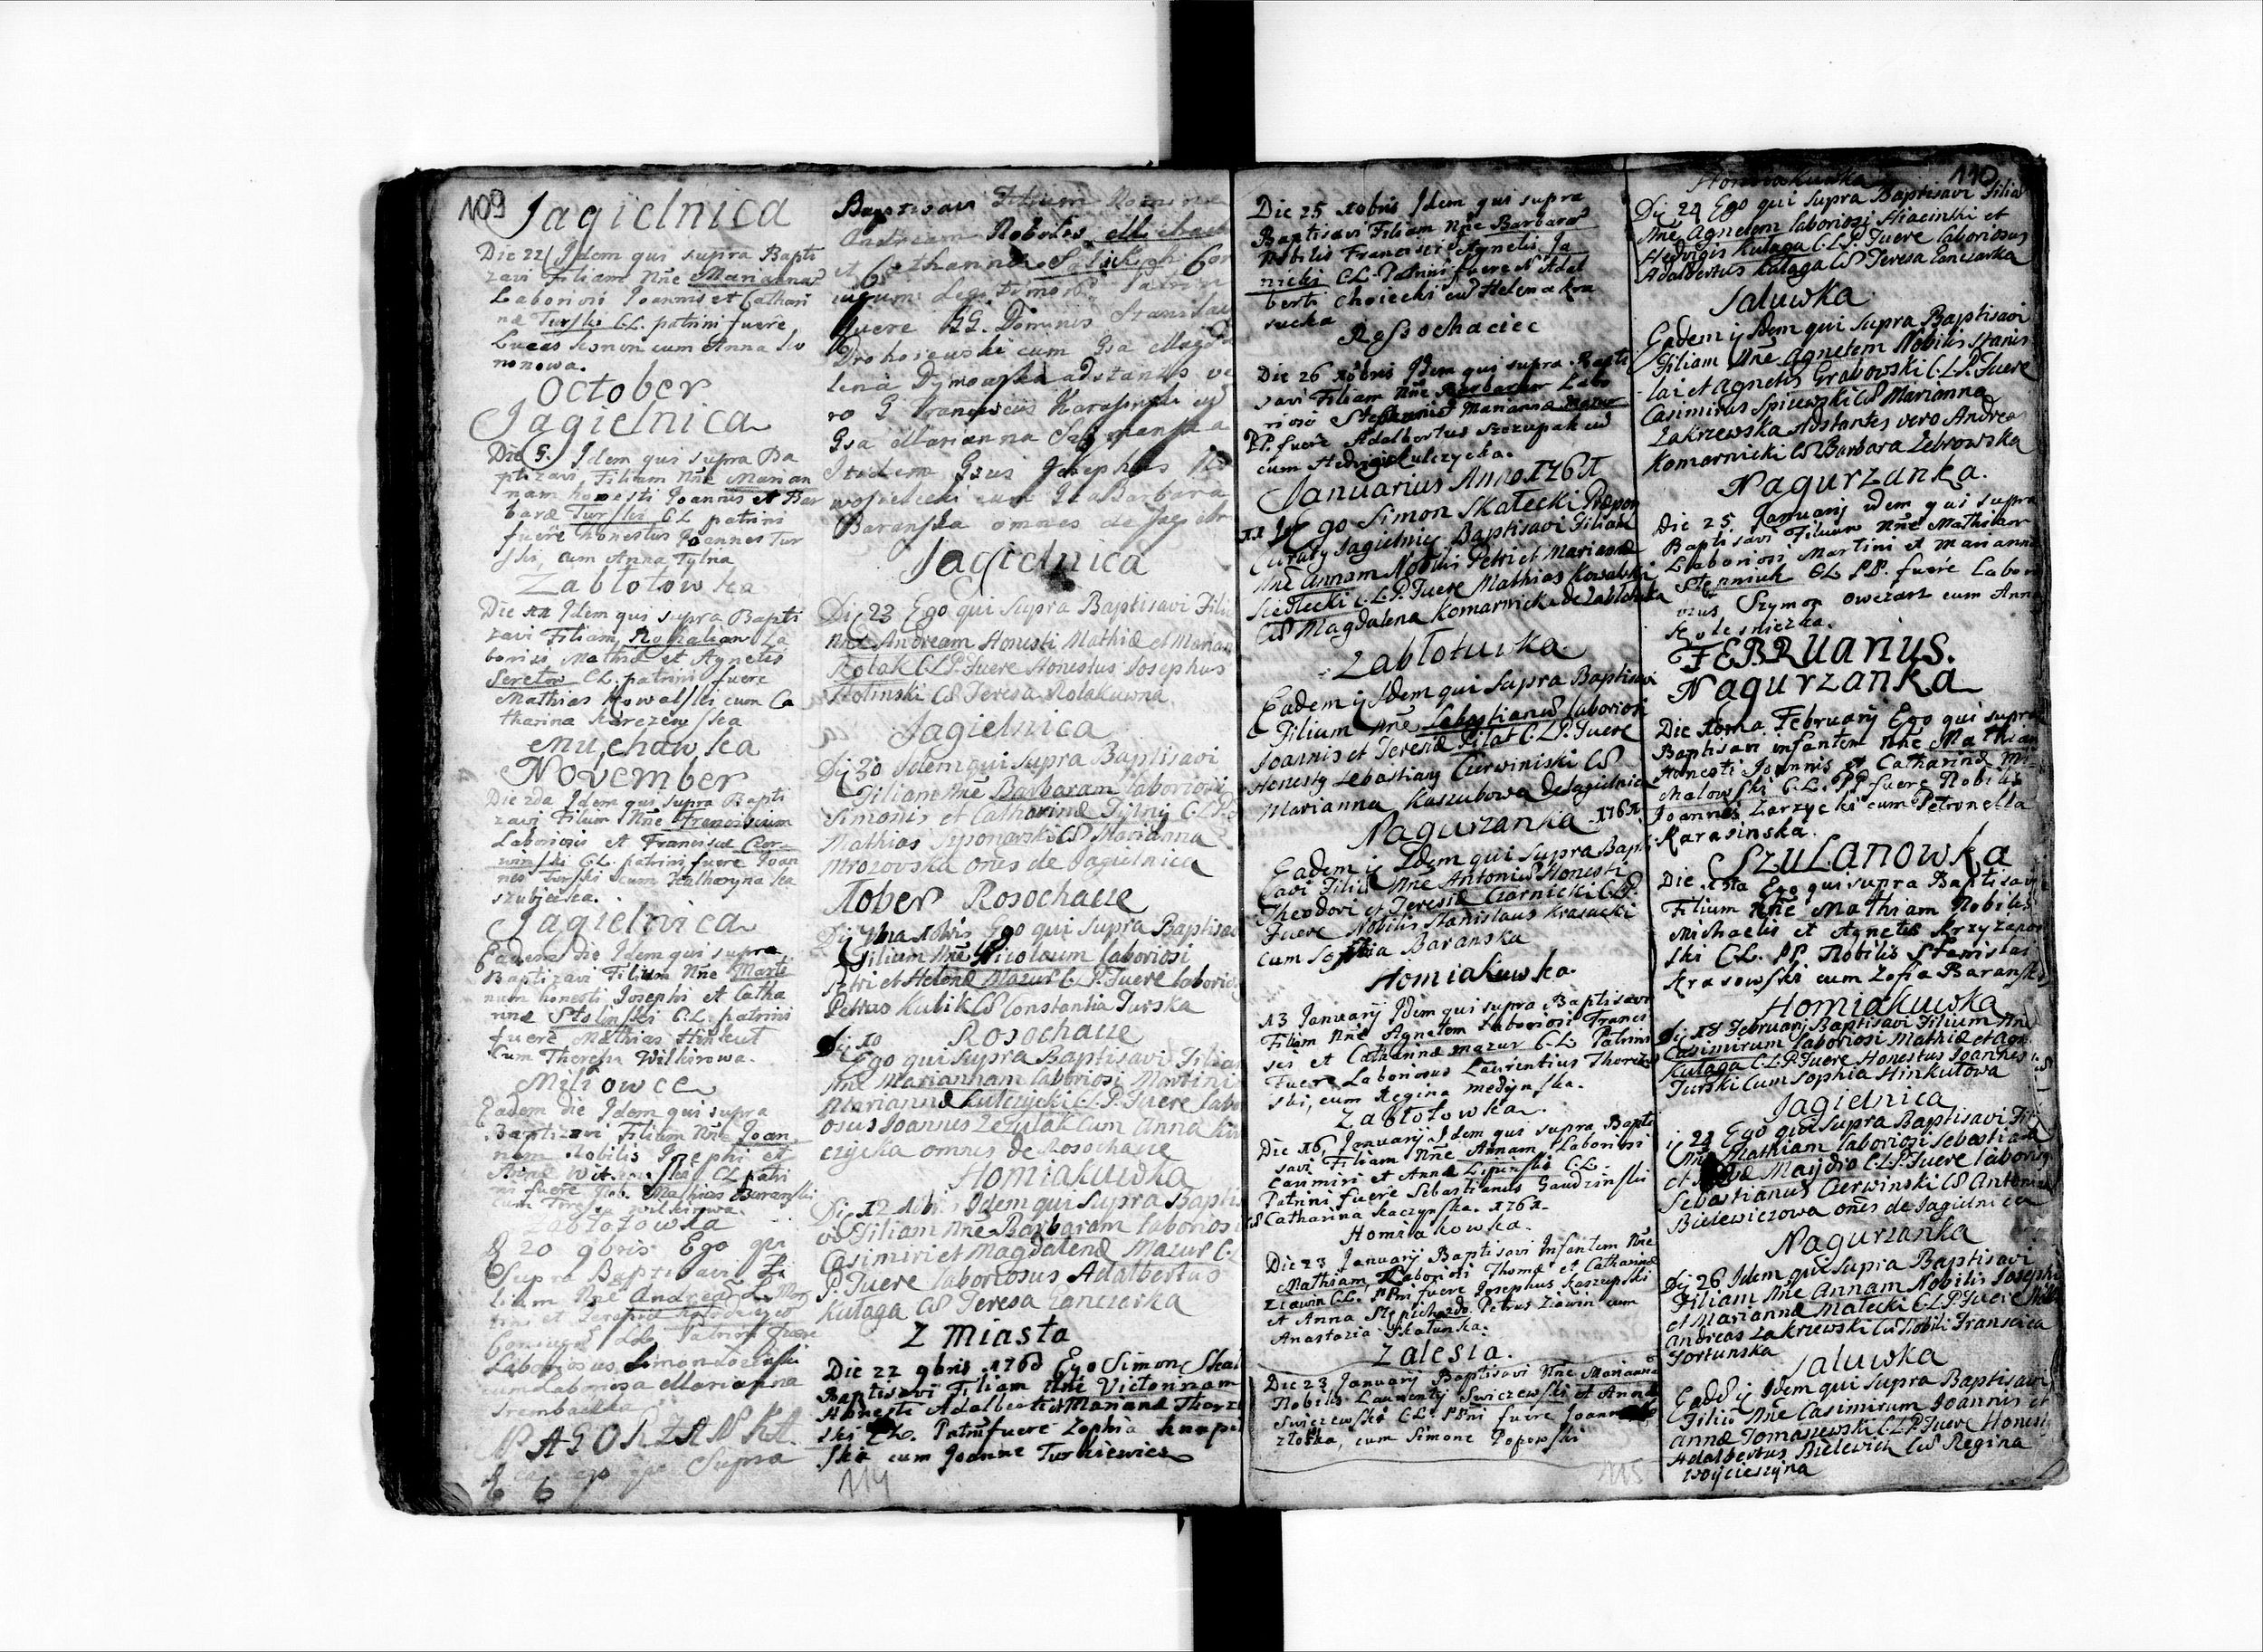 109
Jagielnica
Die 22 Idem qui supra Bapti
zavi Filiam Nne Mariannã
Laboriosi Joannis et Cathari
næ Turski C.L. patrini fuere
Lucas cum Anna
nonowa.
October
Jagielnica
Die 5. Idem qui supra Ba
ptizavi, Filiam Nne Marian
nam honesti Joannis et Bar
baræ Turski CL patrini
fuere honestus Joannes Tur
ski, cum Anna Tylna
Zabłotowka
Die 12 Idem qui supra Bapti
zavi Filiam Rosaliam La
boriosi Mathiæ et Agnetis
Seretow CL. patrini fuere
Mathias Kowalski cum Ca
tharina
Muchawka
November
Die 2da Idem qui supra Bapti
zavi Filium Nne Franciscum
Laboriosi et Franciscæ Czer
winski CL. patrini fuere Joan
nes Turski cum Katharyna
Jagielnica
Eadem die Idem qui supra
Baptizavi Filium Nne Marti
num honesti Josephi et Catha
rinæ Stolinski C.L. patrini
fuere Mathias Hinkut
Cum Theresa Wilkirowa.
Miliowce
Eadem die Idem qui supra
Baptizavi Filium Nne Joan
nem Nobilis Josephi et
Annæ CL patri
ni fuere Nob. Mathias Baranski
cum Teresa Wilkirowa.
Zabłotowka
20 9bris Ego qui
Supra Baptisavi Fi
lium Nne Andreã L. Mar
tini et
Coniugū Patrini fuere
Laboriosus Simon
cum Laboriosa Marianna
Trembacka
NAGORZANKA
Supra
6
Baptisavi Filium Nomine
Andream Nobiles Michaelis
et Catharinæ Con
iugum Legitimorũ Patrini
fuere GG. Dominus Stanislaus
Drohojewski cum Gsa Magda
lena Dymowska adstantes ve
ro G Franciscus Karasinski cũ
Gsa Marianna Szymanska
Itidem Gsus Josephus
cum Gsa Barbara
Baranska omnes de Jagieln
Jagielnica
Dij 23 Ego qui supra Baptisavi Filiũ
Nne Andream Honesti Mathiæ et Marian
Rolak C.L.P. Fuere Honestus Josephus
Stolinski cũ Teresa Rolakuwna
Jagielnica
Dij 30 Idem qui supra Baptisavi
Filiam Nne Barbaram laboriosi
Simonis et Catharinæ Tylnij C.L.P.
Mathias Syponarski cũ Marianna
Mrozovska oñes de Jagielnica
Xober Rosochacze
Dij 7ma Xbris Ego qui supra Baptisavi
Filium Nne Nicolaum laboriosi
Petri et Helenæ Mazur C.L.P. Fuere laborio
Petrus Kulik cũ Constantia Turska
Dij 10 Rosochacze
Ego qui supra Baptisavi Filiam
Nne Mariannam laboriosi Martini
Mariannæ Kulczycki C.L.P. Fuere labo
osus Joannes Zezulak cum Anna Kul
czycka omnes de Rosochacze
Homiakuwka
Dij 12 Xbris Idem qui supra Bapti
vi Filiam Nne Barbaram laborios
Casimiri et Magdalenæ Mazur C.L
P. Fuere laboriosus Adalbertus
Kułaga cũ Teresa Łanczarka
Z Miasta
Die 22 9bris 1760 Ego Simon Skał
Baptisavi Filiam Nne Victoriam
Honesti Adalberti et Marianæ Thorz
ski CL. Patrini fuere Zophia
ska cum Joanne Turkiewicz
114
Die 25 Xobris Idem qui supra
Baptisavi Filiam Nne Barbarã
Nobilis Francisci et Agnetis Ja
nicki CL. Patrini fuere N Adal
berti Choiecki cũ Helena Kra
sucka
Rossochaciec
Die 26 Xobris Idem qui supra Bapti
savi Filiam Nne Barbaram Labo
riosi Stephani et Mariannæ Mazur
PP. fuere Adalbertus Szczupak cũ
cum Hedvigis Kulczycka.
Januarius Anno 1761
11 Ja Ego Simon Skałecki Præpon
Curaty Jagielnic Baptisavi Filiam
Nne Annam Nobilis Petri et Mariannæ
Siedlecki C.L.P. Fuere Mathias Kowalski
cũ Magdalena Komarnicka de Zablotuwka
Zabłotuwka
Eadem ij Idem qui supra Baptisavi
Filium Nne Sebastianũ laboriosi
Joannis et Teresiæ Piłat C.L.P. Fuere
Honesty Sebastiany Czerwiniski cũ
Marianna Kaszubowa de Jagielnica
1761.
Nagurzanka
Eadem ij Idem qui supra Bapti
zavi Filiũ Nne Antoniũ Honesti
Theodori et Teresiæ Czarnicki C.L.P.
Fuere Nobilis Stanislaus Krasucki
cum Sophia Baranska
Homiakuwka.
13 Januarij Idem qui supra Baptisavi
Filiam Nne Agnetem Laboriosi Franci
sci et Catharinæ Mazur C-L Patrini
Fuere Laboriosus Laurentius Thorcz
ski, cum Regina Medynska.
Zabłotowka.
Die 16 Januarij Idem qui supra Bapti
savi Filiam Nne Annam Laboriosi
Casimiri et Annæ Lipinski C.L.
Patrini fuere Sebastianus Gaudzinski
cũ Catharina Kaczynska. 1761.
Homiakowka.
Die 23 Januarij Baptisavi Infantem Nne
Mathiam, Laboriosi Thomæ et Catharinæ
Ziawin CL. PPni fuere Josephus Kaszupski
et Anna Petrus Ziawin cum
Anastazia Skałunka.
Zalesia.
Die 23 Januarij Baptisavi Nne Mariannã
Nobilis Laurentij Swiczewski et Annæ
Swiczewska CL. PPni fuere Joannes
Złotka, cum Simone Popowski
115
110
Homiakuwka
Dij 24 Ego qui supra Baptisavi Filiã
Nne Agnetem laboriosi Hiacinthi et
Hedvigis Kułaga C.L.P. Fuere laboriosus
Adalbertus Kułaga cũ Teresa Łanczarka
Saluwka
Eadem ij Idem qui supra Baptisavi
Filiam Nne Agnetem Nobilis Stanis
lai et Agnetis Grabowski C.L.P. Fuere
Casimirus Spiewski cũ Marianna
Zakrzewska Adstantes vero Andrea
Komarnicki cũ Barbara Zebrowska
Nagurzanka.
Die 25 Januarij idem qui supra
Baptisavi Filium Nne Mathiam
Laboriosi Martini et Marianna
Stepniuk CL PP. fuere Labor
osus Szymon Owczarz cum Anna
Kolesniczka.
FEBRUARIUS.
Nagurzanka
Die Xma February Ego qui supra
Baptisavi infantem Nne Mathiam
Honesti Joannis et Catharinæ Mi
chalowski C.L. PP fuere Nobilis
Joannes Zarzycki cum Petronella
Karasinska.
Szulanowka
Die 15ta Ego qui supra Baptisavi
Filium Nne Mathiam Nobilis
Michaelis et Agnetis Krzyzanow
ski CL. PP. Nobilis Stanislas
Krasowski cum Zofia Baranska
Homiakuwka
Dij 18 Februarij Baptisavi Filium Nne
Casimirum laboriosi Mathiæ et Agn
Kułaga C.L.P. Fuere Honestus Joannes
Turski Cum Sophia Hinkutowa
Jagielnica
ij 24 Ego qui supra Baptisavi Fi
Nne Mathiam laboriosi Sebastiani
et Maydro C.L.P. Fuere laborios
Sebastianus Czerwinski cũ Antonina
Bielewiczowa oñes de Jagielnica
Nagurzanka
Dij 26 Idem qui supra Baptisavi
Filiam Nne Annam Nobilis Josephi
et Mariannæ Małecki C.L.P. Fuere Nob
Andreas Zakrzewski cũ Nobili Francisca
Fortunska
Saluwka
Eadē ij Idem qui supra Baptisavi
Filiũ Nne Casimirum Joannis et
Annæ Tomaszewski C.L.P. Fuere Honesty
Adalbertus Bielevicz cũ Regina
Woycieszyna